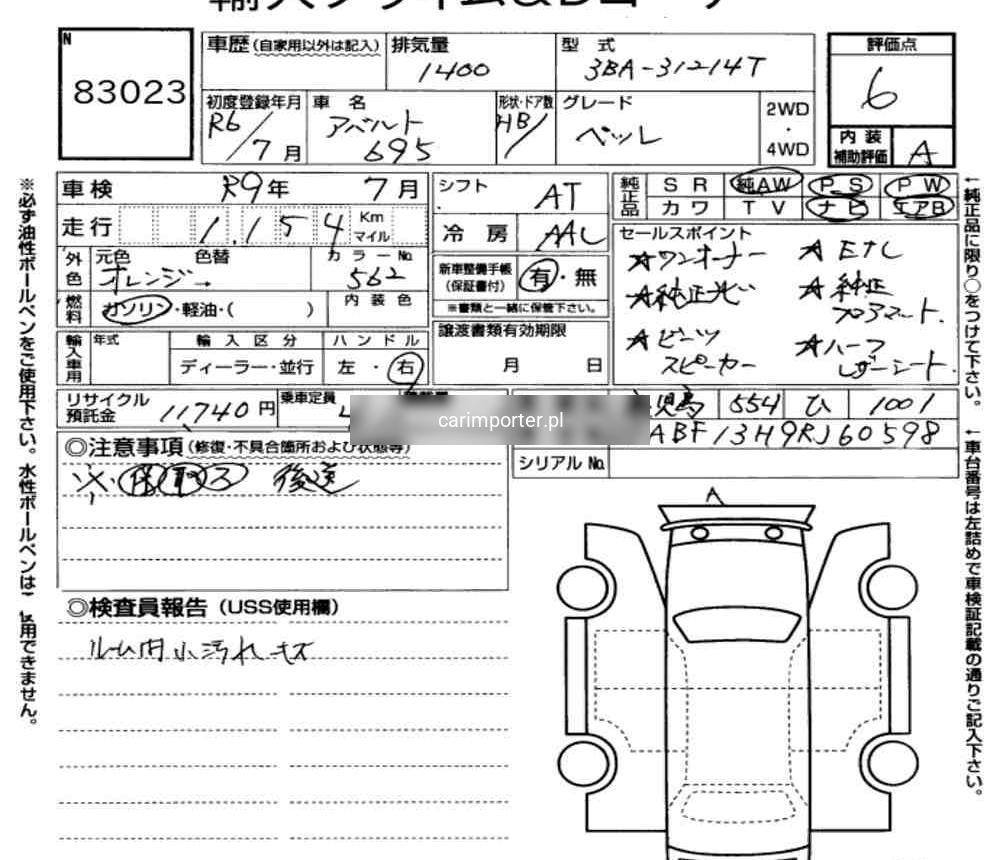 N
83023
車歴(自家用以外は記入)
排気量
1400
型式
3BA-31214T
評価点
6
初度登録年月
R6/7月
車名
アバルト
695
形状・ドア数
HB/
グレード
ベッレ
2WD
・
4WD
内装
補助評価
A
車検 R9年 7月
走行 1,154 Km マイル
シフト AT
冷房 AAC
純正品
SR 純AW PS PW
カワ TV ナビ エアB
外色
元色 色替 カラーNo.
オレンジ→ 562
燃料
ガソリン・軽油・( )
内装色
新車整備手帳
(保証書付)
有・無
※書類と一緒に保管下さい。
セールスポイント
☆ワンオーナー ☆ETC
☆純正 ☆純正
フロアマット
☆ビーツ ☆ハーフ
スピーカー レザーシート
輸入車用
年式
輸入区分 ハンドル
ディーラー・並行 左・右
譲渡書類有効期限
月 日
リサイクル
預託金
11740円
乗車定員
carimporter.pl
児島 554 ひ 1001
ABF13H9RJ60598
シリアルNo.
◎注意事項(修復・不具合箇所および状態等)
後送
◎検査員報告(USS使用欄)
ルーム内小汚れキズ
A
※必ず油性ボールペンをご使用下さい。水性ボールペンは
用できません。
←純正品に限り○をつけて下さい。
←車台番号は左詰めで車検証記載の通りご記入下さい。